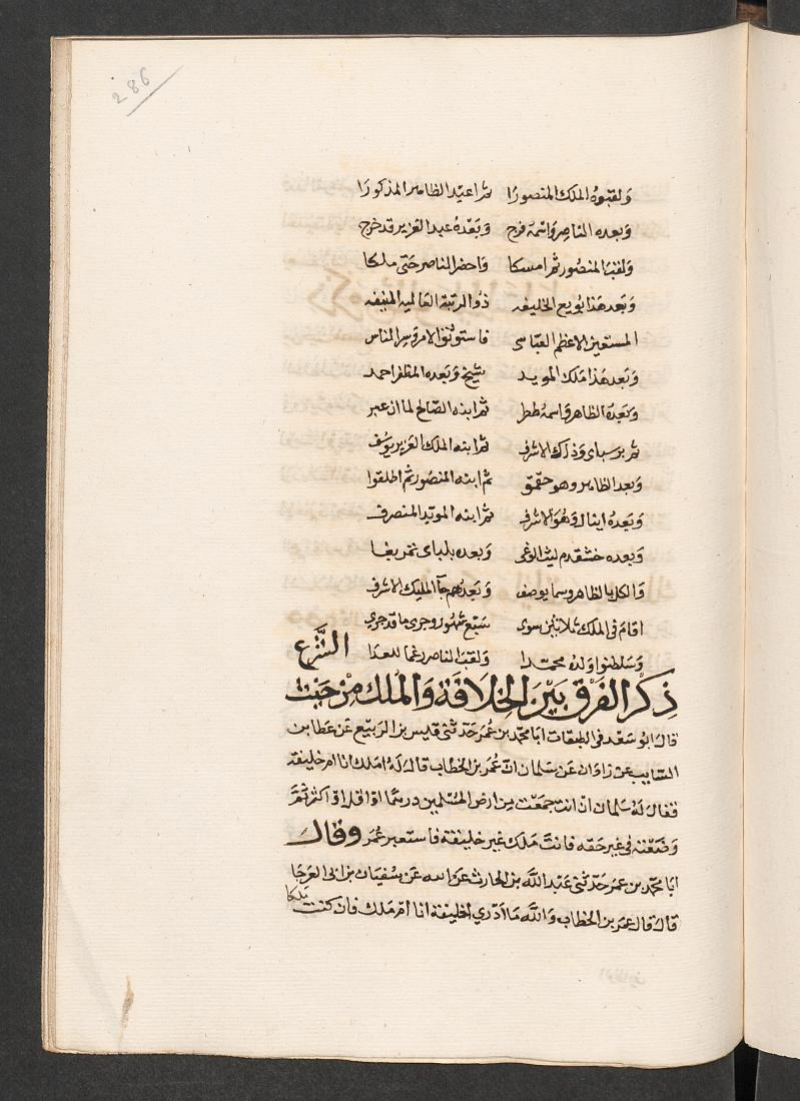 286
ولقبوه الملك المنصورا ثم اعيد الظاهر المذكورا
وبعده الناصر واسمه فرج وبعده عبد العزيز قد خرج
ولقب المنصور ثم امسكا واحضر الناصر حتى ملكا
وبعد هذا بويع الخليفه ذو الرتبة العالية المنيفه
المستعين الاعظم العباسى فاستوثق الامر وسر الناس
وبعد هذا ملك المويد شيخ وبعده المظفر احمد
وبعده الظاهر واسمه ططر ثم ابنه الصالح لما ان عبر
ثم برسباى وذاك الاشرف ثم ابنه الملك العزيز يوسف
وبعد الظاهر وهو جقمق ثم ابنه المنصور ثم اطلقوا
وبعده اينال وهو الاشرف ثم ابنه المويد المنصرف
وبعده خشقدم ليث الوغى وبعده بلباى تمربغا
والكل بالظاهر وسما يوصف وبعدهم جآ المليك الاشرف
اقام فى الملك ثلاثين سوى سبع شهور وجرى ما قد جرى
وسلطنوا ولده محمدا ولقب الناصر رغما للعدا
ذكر الفرق بين الخلافة والملك من حيث الشرع
قال ابو سعد فى الطبقات انا محمد بن عمر حدثنى قيس بن الربيع عن عطا بن
السايب عن زاذان عن سلمان ان عمر بن الخطاب قال له املك انا ام خليفة
فقال له سلمان ان انت جمعت من ارض المسلمين درهما او اقل او اكثر ثم
وضعته فى غير حقه فانت ملك غير خليفة فاستعبر عمر وقال
انا محمد بن عمر حدثنى عبد الله بن الحارث عن ابيه عن سفيان بن ابى العرجا
قال قال عمر بن الخطاب والله ما ادري اخليفة انا ام ملك فان كنت ملكا